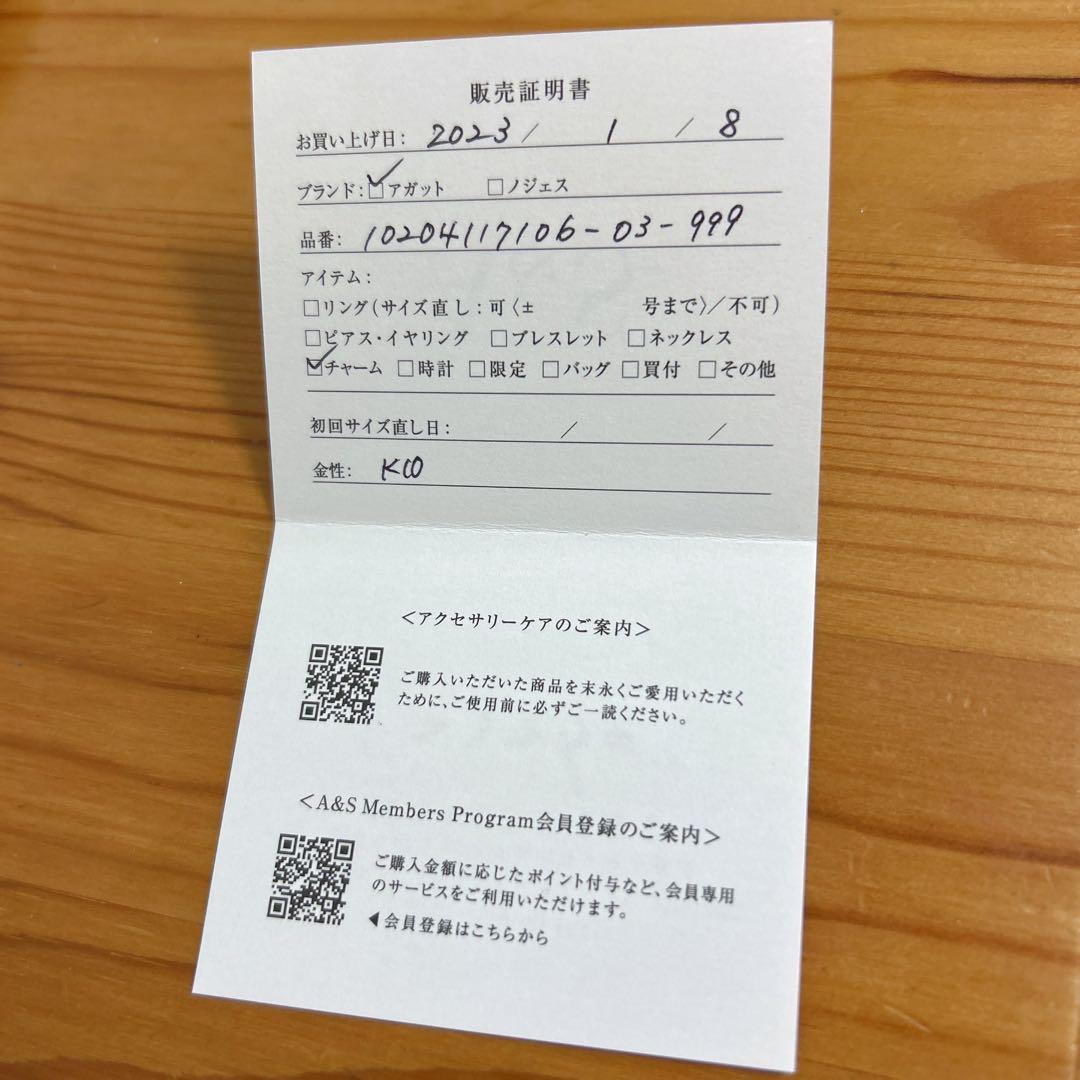 販売証明書
お買い上げ日: 2023 / 1 / 8
ブランド: ☑アガット □ノジェス
品番: 10204117106-03-999
アイテム:
□リング(サイズ直し:可〈± 号まで〉/不可)
□ピアス・イヤリング □ブレスレット □ネックレス
☑チャーム □時計 □限定 □バッグ □買付 □その他
初回サイズ直し日: / /
金性: K10
<アクセサリーケアのご案内>
ご購入いただいた商品を末永くご愛用いただく
ために、ご使用前に必ずご一読ください。
<A&S Members Program会員登録のご案内>
ご購入金額に応じたポイント付与など、会員専用
のサービスをご利用いただけます。
◀会員登録はこちらから